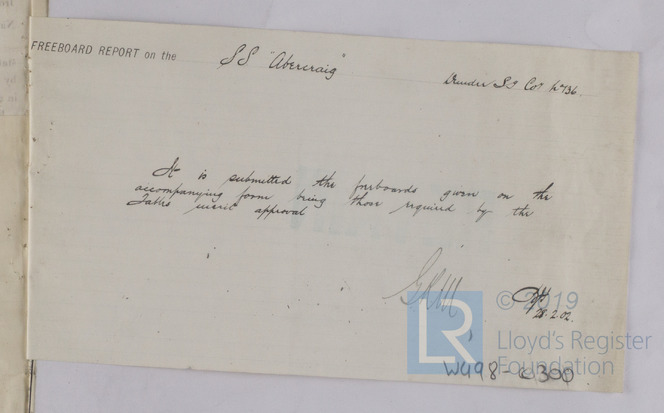 FREEBOARD REPORT on the
SS "Abercraig"
Dundee S.B. Co's No 136
It is submitted the freeboards given on the
accompanying form being those required by the
Tables merit approval
28.2.02.
© 2019
LR
Lloyd's Register
Foundation
W498-0300